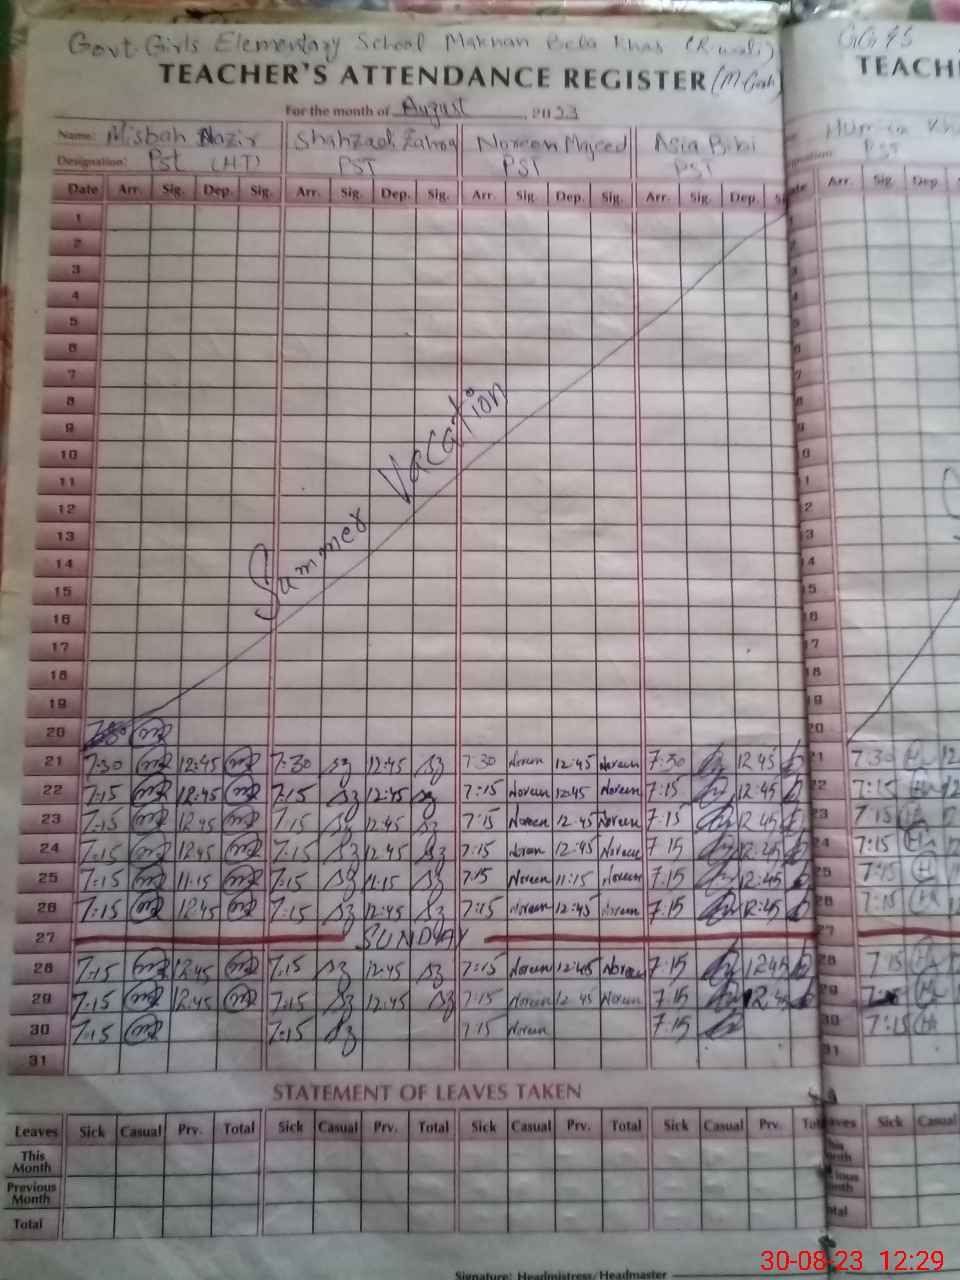 Govt Girls Elementary School Maknan Bela Khas (R.wali) GGES
TEACHER'S ATTENDANCE REGISTER (M Garh) TEACH
For the month of August, 2023
Name: Misbah Nazir Shahzadi Zahra Noreen Majeed Asia Bibi
Designation: Pst (HT) PST PST PST PST
Date Arr. Sig. Dep. Sig. Arr. Sig. Dep. Sig. Arr. Sig. Dep. Sig. Arr. Sig. Dep. Arr. Sig. Dep
1
2
3
4
5
6
7
8
9
10
11
12
13
14
15
16
17
18
19
Summer Vacation
20
21 7:30 12:45 7:30 Sz 12:45 Sz 7:30 Noreen 12:45 Noreen 7:30 12:45 7:30
22 7:15 12:45 7:15 Sz 12:45 Sz 7:15 Noreen 12:45 Noreen 7:15 12:45 7:15
23 7:15 12:45 7:15 Sz 12:45 Sz 7:15 Noreen 12:45 Noreen 7:15 12:45 7:15
24 7:15 12:45 7:15 Sz 12:45 Sz 7:15 Noreen 12:45 Noreen 7:15 12:45 7:15
25 7:15 11:15 7:15 Sz 11:15 Sz 7:15 Noreen 11:15 Noreen 7:15 12:45 7:15
26 7:15 12:45 7:15 Sz 12:45 Sz 7:15 Noreen 12:45 Noreen 7:15 12:45 7:15
27 SUNDAY
28 7:15 12:45 7:15 Sz 12:45 Sz 7:15 Noreen 12:45 Noreen 7:15 12:45 7:15
29 7:15 12:45 7:15 Sz 12:45 Sz 7:15 Noreen 12:45 Noreen 7:15 12:45
30 7:15 7:15 Sz 7:15 Noreen 7:15 7:15
31
STATEMENT OF LEAVES TAKEN
Leaves Sick Casual Prv. Total Sick Casual Prv. Total Sick Casual Prv. Total Sick Casual Prv. Sick Casual
This Month
Previous Month
Total
Signature: Headmistress/Headmaster
30-08-23 12:29